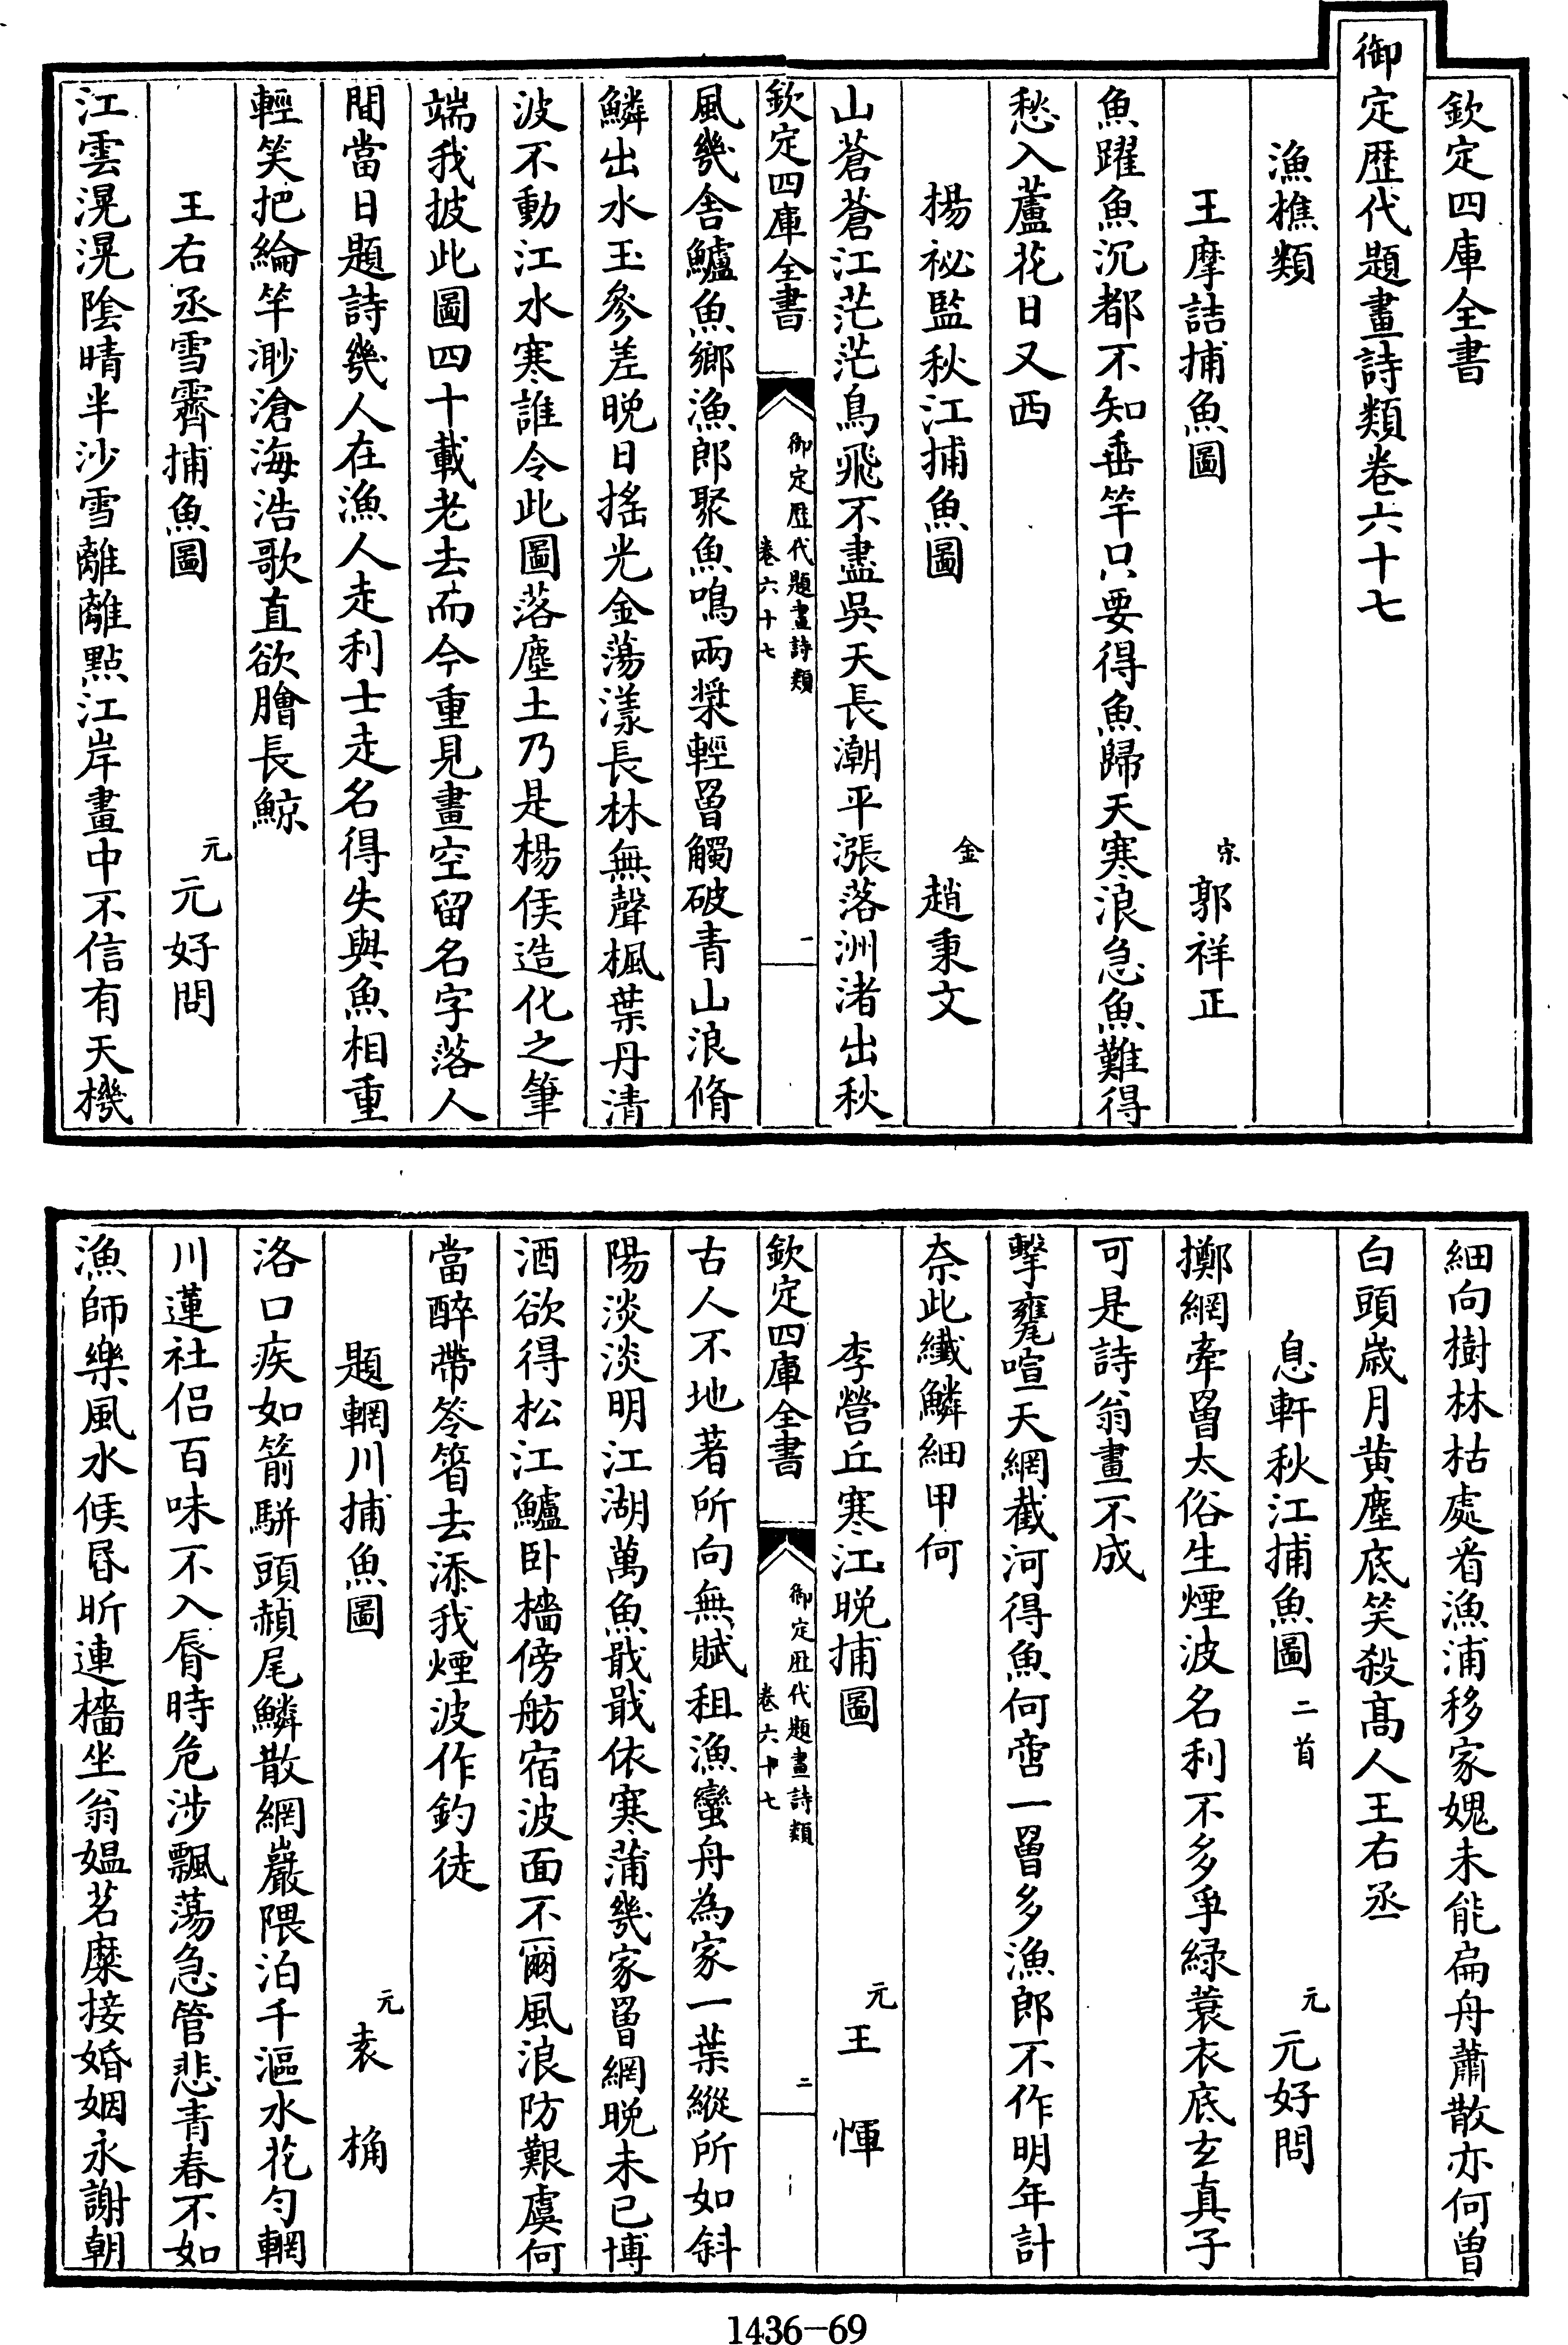 欽定四庫全書
御定歴代題畫詩類卷六十七
漁樵類
王摩詰捕魚圖 宋 郭祥正
魚躍魚沉都不知垂竿只要得魚歸天寒浪急魚難得
愁入蘆花日又西
楊祕監秋江捕魚圖 金 趙秉文
山蒼蒼江茫茫鳥飛不盡吳天長潮平漲落洲渚出秋
欽定四庫全書 御定歴代題畫詩類 卷六十七 一
風幾舎鱸魚鄉漁郎聚魚鳴兩槳輕罾觸破青山浪脩
鱗出水玉參差晚日搖光金蕩漾長林無聲楓葉丹清
波不動江水寒誰令此圖落塵土乃是楊侯造化之筆
端我披此圖四十載老去而今重見畫空留名字落人
間當日題詩幾人在漁人走利士走名得失與魚相重
輕笑把綸竿渺滄海浩歌直欲膾長鯨
王右丞雪霽捕魚圖 元 元好問
江雲滉滉陰晴半沙雪離離點江岸畫中不信有天機
細向樹林枯處看漁浦移家媿未能扁舟蕭散亦何曽
白頭歲月黄塵底笑殺髙人王右丞
息軒秋江捕魚圖二首 元 元好問
擲網牽罾太俗生煙波名利不多爭緑蓑衣底玄真子
可是詩翁畫不成
擊甕喧天網截河得魚何啻一罾多漁郎不作明年計
奈此纖鱗細甲何
李營丘寒江晚捕圖 元 王惲
欽定四庫全書 御定歴代題畫詩類 卷六十七 二
古人不地著所向無賦租漁蠻舟為家一葉縱所如斜
陽淡淡明江湖萬魚戢戢依寒蒲幾家罾網晚未已博
酒欲得松江鱸卧檣傍舫宿波面不爾風浪防艱虞何
當醉帶笭箵去添我煙波作釣徒
題輞川捕魚圖 元 袁桷
洛口疾如箭駢頭赬尾鱗散網巖隈泊千漚水花勻輞
川蓮社侣百味不入脣時危涉飄蕩急管悲青春不如
漁師樂風水候昬昕連檣坐翁媼茗糜接婚姻永謝朝
1436-69